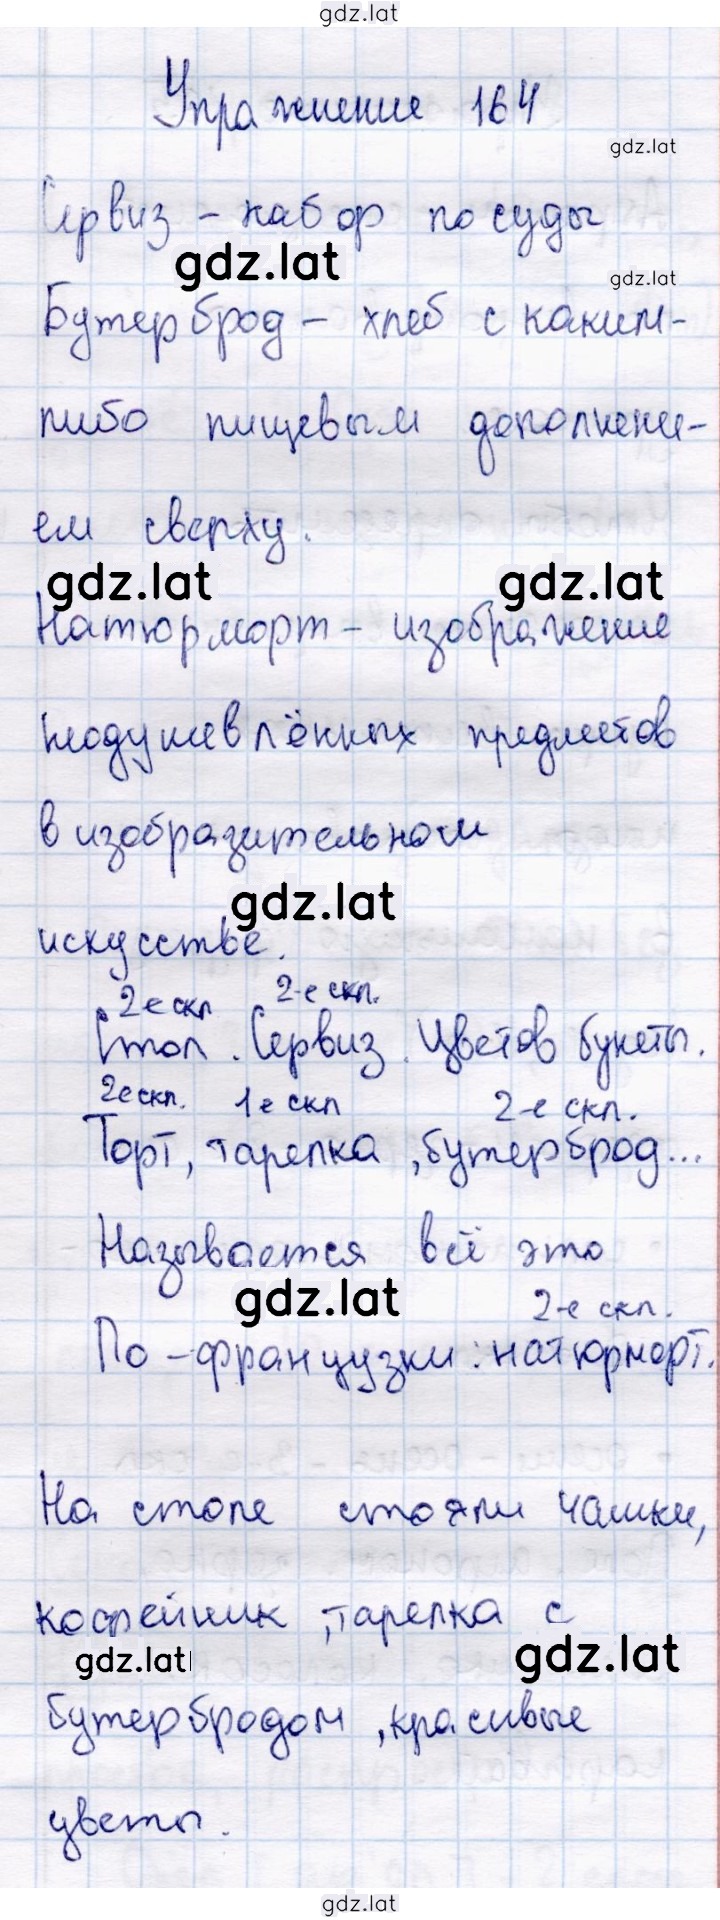 gdz.lat
Упражнение 164
gdz.lat
Сервиз - набор посуды
gdz.lat
gdz.lat
Бутерброд - хлеб с каким-
либо пищевым дополнени-
ем сверху.
gdz.lat gdz.lat
Натюрморт - изображение
неодушевлённых предметов
в изобразительном
gdz.lat
искусстве.
2-е скл 2-е скл.
Стол. Сервиз. Цветов букеты.
2е скл. 1е скл 2-е скл.
Торт, тарелка, бутерброд...
Называется всё это
gdz.lat
2-е скл.
По-французки: натюрморт.
На столе стояли чашки,
кофейник, тарелка с
gdz.lat gdz.lat
бутербродом, красивые
цветы.
gdz.lat